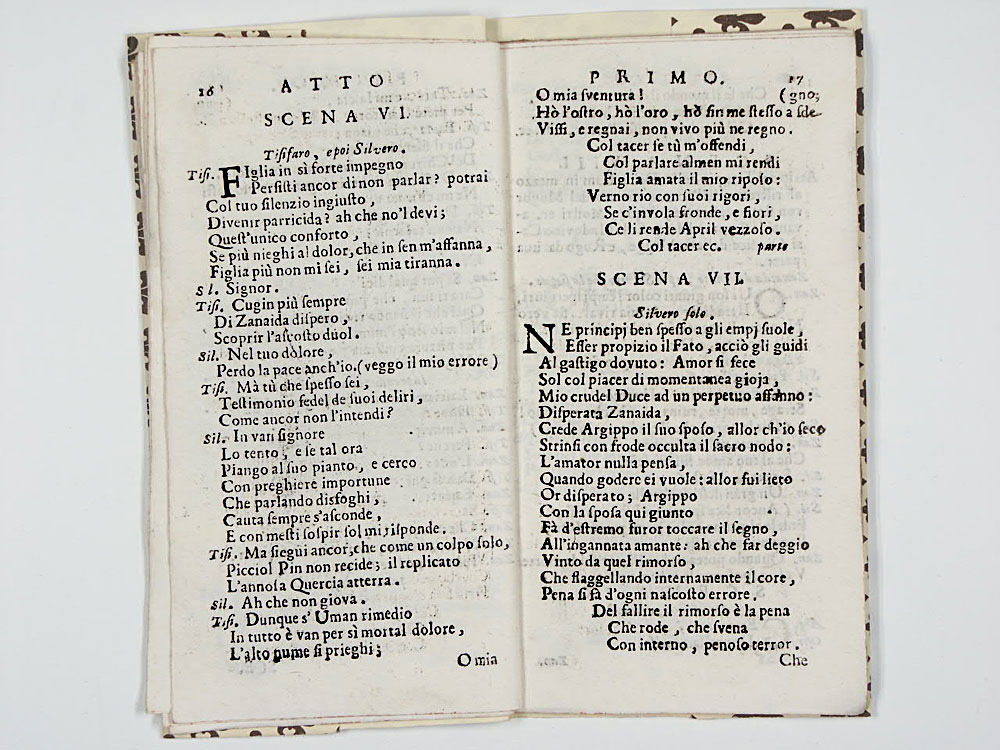 16
ATTO
SCENA VI.
Tisifaro, e poi Silvero.
Tisi. FIglia in sì forte impegno
Persisti ancor di non parlar? potrai
Col tuo silenzio ingiusto,
Divenir parricida? ah che no'l devi;
Quest'unico conforto,
Se più nieghi al dolor, che in sen m'affanna,
Figlia più non mi sei, sei mia tiranna.
Sil. Signor.
Tisi. Cugin più sempre
Di Zanaida dispero,
Scoprir l'ascosto duol.
Sil. Nel tuo dolore,
Perdo la pace anch'io. (veggo il mio errore)
Tisi. Mà tù che spesso sei,
Testimonio fedel de suoi deliri,
Come ancor non l'intendi?
Sil. In van signore
Lo tento; e se tal ora
Piango al suo pianto, e cerco
Con preghiere importune
Che parlando disfoghi,
Cauta sempre s'asconde,
E con mesti sospir sol mi risponde.
Tisi. Ma siegui ancor, che come un colpo solo,
Picciol Pin non recide; il replicato
L'annosa Quercia atterra.
Sil. Ah che non giova.
Tisi. Dunque s'Uman rimedio
In tutto è van per sì mortal dolore,
L'alto nume si prieghi;
O mia
PRIMO.
17
O mia sventura! (gno;
Hò l'ostro, hò l'oro, hò fin me stesso a sde-
Vissi, e regnai, non vivo più ne regno.
Col tacer se tù m'offendi,
Col parlare almen mi rendi
Figlia amata il mio riposo:
Verno rio con suoi rigori,
Se c'invola fronde, e fiori,
Ce li rende April vezzoso.
Col tacer ec. parte
SCENA VII.
Silvero solo.
NE principj ben spesso a gli empj suole,
Esser propizio il Fato, acciò gli guidi
Al gastigo dovuto: Amor si fece
Sol col piacer di momentanea gioja,
Mio crudel Duce ad un perpetuo affanno:
Disperata Zanaida,
Crede Argippo il suo sposo, allor ch'io seco
Strinsi con frode occulta il sacro nodo:
L'amator nulla pensa,
Quando godere ei vuole: allor fui lieto
Or disperato; Argippo
Con la sposa qui giunto
Fà d'estremo furor toccare il segno,
All'ingannata amante: ah che far deggio
Vinto da quel rimorso,
Che flaggellando internamente il core,
Pena si fà d'ogni nascosto errore.
Del fallire il rimorso è la pena
Che rode, che svena
Con interno, penoso terror.
Che